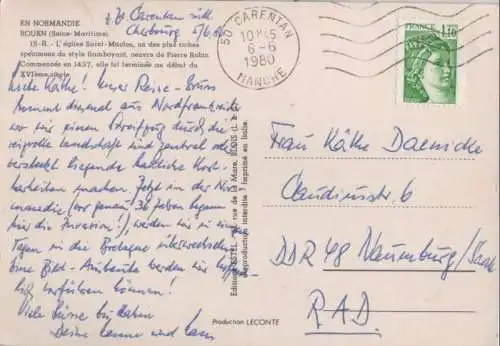 EN NORMANDIE
ROUEN (Seine-Maritime)
15-R. - L'église Saint-Maclou, un des plus riches
spécimens du style flamboyant, oeuvre de Pierre Robin
Commencée en 1437, elle fut terminée au début du
XVIème siècle.
z. Zt. Carentan südl.
Cherbourg 5/6 80
Liebe Käthe! Unser Reise-Gruss
kommt diesmal aus Nordfrankreich
wo wir einen Streifzug durch die
reizvolle Landschaft und zentral oder
versteckt liegende bauliche Kost-
barkeiten machen. Jetzt in der Nor-
mandie (vor genau 36 Jahren begann
hier die Invasion!), werden wir in ein
Tagen in die Bretagne überwechseln
Eine Bild-Ausbeute werden wir hoffent-
lich vorführen können!
Viele Grüsse bis dahin
Deine Hanne und Hans
Editions ESTEL, rue de la Mare, BLOIS (L. &
Reproduction interdite / Imprimé en Italie.
Production LECONTE
50 CARENTAN
6-6
1980
MANCHE
FRANCE
1,10
Frau Käthe Daenicke
Claudiusstr. 6
DDR 48 Naumburg/Saale
R.A.D.